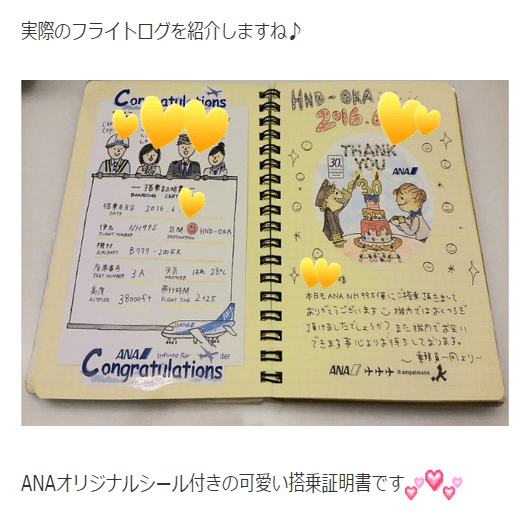 実際のフライトログを紹介しますね♪
Congratulations
搭乗証明書
BOARDING CERT
搭乗年月日 2016.6
DATE
便名 NH995 区間 HND-OKA
FLIGHT NUMBER DESTINATION
機材 B777-200ER
AIRCRAFT
座席番号 3A 天気 はれ 28℃
SEAT NUMBER WEATHER
高度 38000ft 飛行時間 2+25
ALTITUDE FLIGHT TIME
ANA
ANA Inflight Ser
Congratulations
HND-OKA
2016.6
THANK
YOU
30
ANA
30
様
本日もANA NH995便にご搭乗頂きまして
ありがとうございます 機内ではおくつろぎ
頂けましたでしょうか? また機内でお会い
できます事心よりお待ちしております。
〜乗務員一同より〜
ANA ampelmann
ANAオリジナルシール付きの可愛い搭乗証明書です💕💕